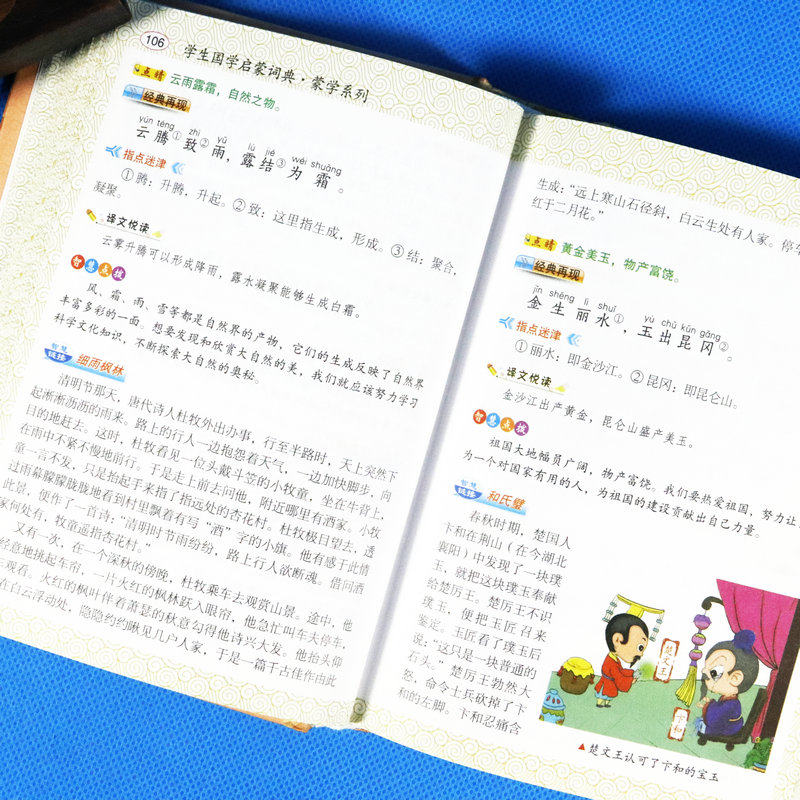 106
学生国学启蒙词典·蒙学系列
点睛 云雨露霜，自然之物。
经典再现
yún téng zhì yǔ lù jié wéi shuāng
云腾①致②雨，露结③为霜。
指点迷津
①腾：升腾，升起。②致：这里指生成，形成。③结：聚合，
凝聚。
译文悦读
云雾升腾可以形成降雨，露水凝聚能够生成白霜。
智慧点拨
风、霜、雨、雪等都是自然界的产物，它们的生成反映了自然界
丰富多彩的一面。想要发现和欣赏大自然的美，我们就应该努力学习
科学文化知识，不断探索大自然的奥秘。
智慧链接 细雨枫林
清明节那天，唐代诗人杜牧外出办事，行至半路时，天上突然下
起淅淅沥沥的雨来。路上的行人一边抱怨着天气，一边加快脚步，向
目的地赶去。这时，杜牧看见一位头戴斗笠的小牧童，坐在牛背上，
在雨中不紧不慢地前行。于是走上前去问他，附近哪里有酒家。小牧
童一言不发，只是抬起手来指了指远处的杏花村。杜牧极目望去，透
过雨幕朦朦胧胧地看到村里飘着有写“酒”字的小旗。他有感于此情
此景，便作了一首诗：“清明时节雨纷纷，路上行人欲断魂。借问酒
家何处有，牧童遥指杏花村。”
又有一次，在一个深秋的傍晚，杜牧乘车去观赏山景。途中，他
经意地挑起车帘，一片火红的枫林跃入眼帘，他急忙叫车夫停车，
观看。火红的枫叶伴着萧瑟的秋意勾得他诗兴大发。他抬头仰
在白云浮动处，隐隐约约瞅见几户人家，于是一篇千古佳作由此
生成：“远上寒山石径斜，白云生处有人家。停车
红于二月花。”
点睛 黄金美玉，物产富饶。
经典再现
jīn shēng lì shuǐ yù chū kūn gāng
金生丽水①，玉出昆冈②。
指点迷津
①丽水：即金沙江。②昆冈：即昆仑山。
译文悦读
金沙江出产黄金，昆仑山盛产美玉。
智慧点拨
祖国大地幅员广阔，物产富饶。我们要热爱祖国，努力让
为一个对国家有用的人，为祖国的建设贡献出自己力量。
智慧链接 和氏璧
春秋时期，楚国人
卞和在荆山（在今湖北
襄阳）中发现了一块璞
玉，就把这块璞玉奉献
给楚厉王。楚厉王不识
璞玉，便把玉匠召来
鉴定。玉匠看了璞玉后
说：“这只是一块普通的
石头。”楚厉王勃然大
怒，命令士兵砍掉了卞
和的左脚。卞和忍痛含
楚文王
卞和
▲楚文王认可了卞和的宝玉